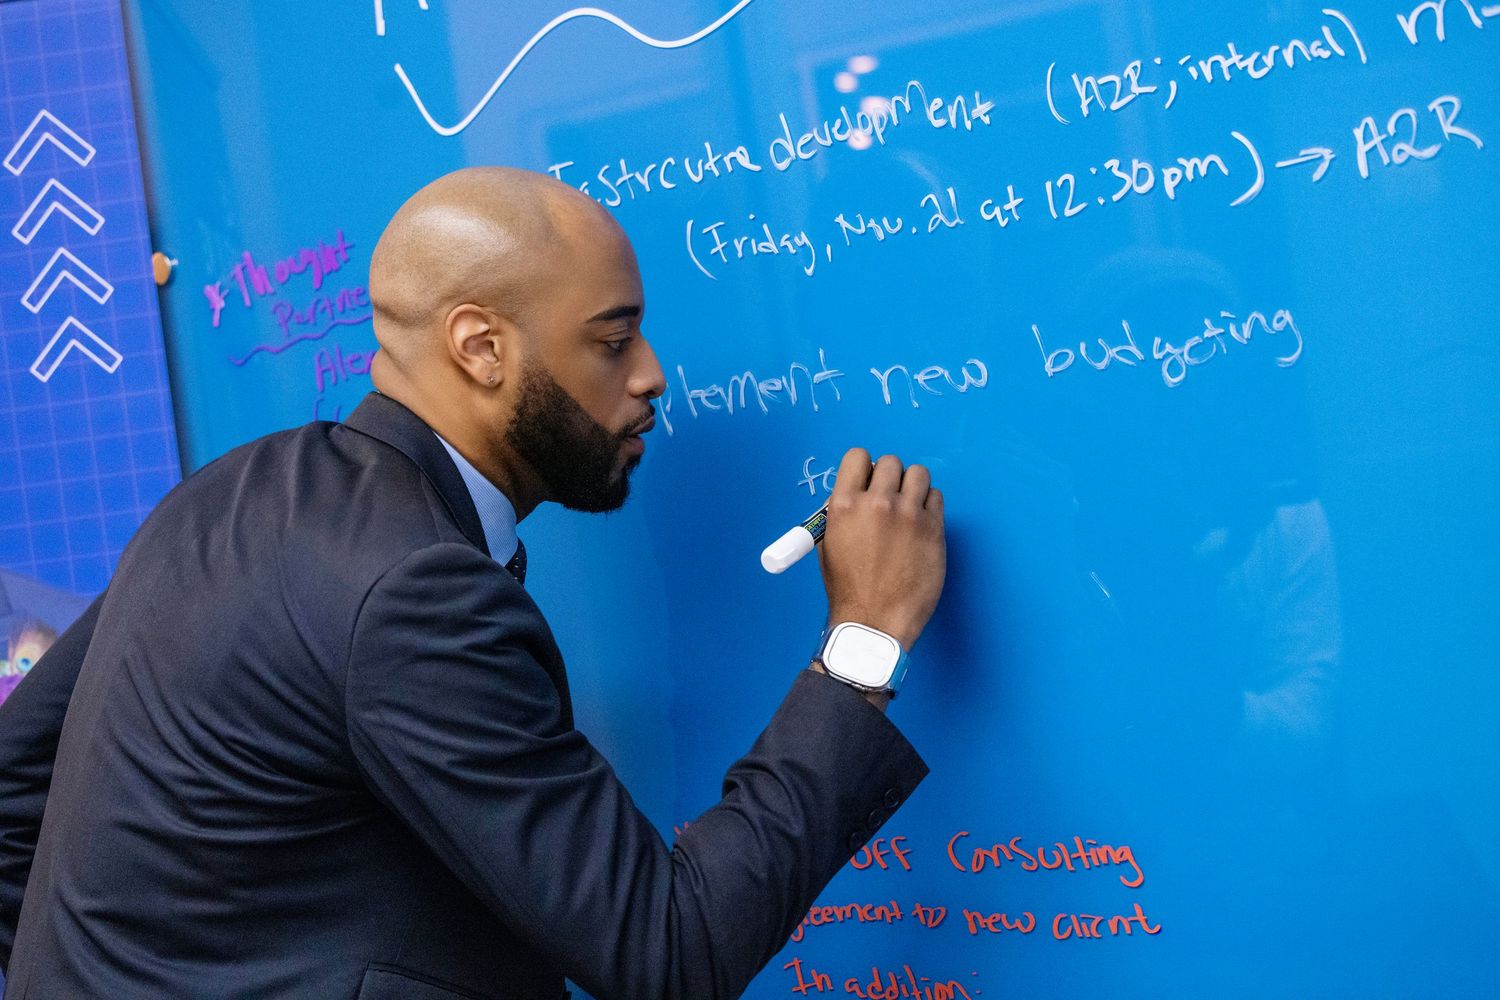 Instrcutre development (A2R; internal) m-
(Friday, Nov. 21 at 12:30pm) → A2R
*Thought
Partne
Alex
plement new budgeting
fo
off Consulting
greement to new client
In addition: